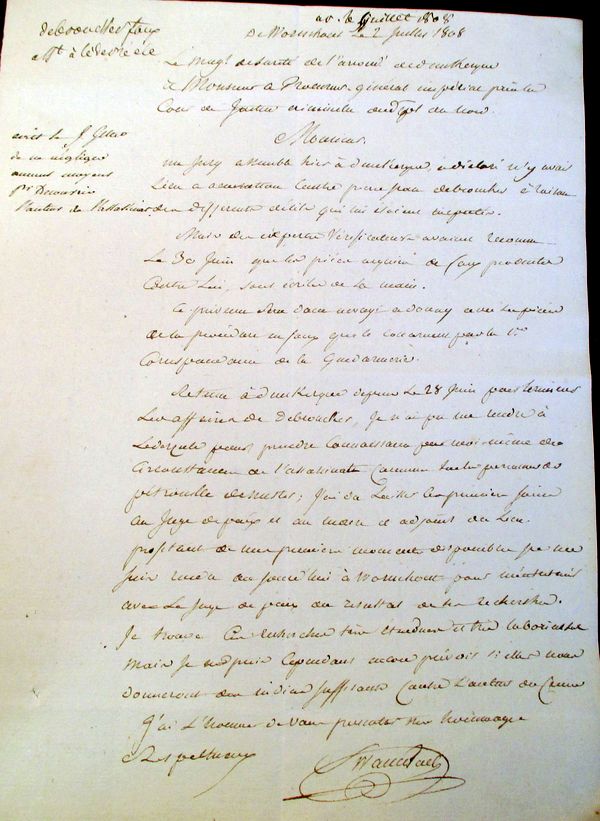 debroucker faux
av. le juillet 1808
De Wormhout Le 2 Juillet 1808
Le Magt de sureté de l'arront de dunkerque
A Monsieur le Procureur général impérial près la
Cour de Justice criminelle du dépt du nord.
Monsieur
écrit le
de ne négliger
aucuns moyens
un Jury assemblé hier à dunkerque, a déclaré n'y avoir
Lieu a accusation Contre pierre jean debroucker à raison
des differents délits qui lui étaient imputés.
Mais des experts Vérificateurs avaient reconnu
Le 30 Juin que les pièces arguées de faux produites
Contre Lui, sont écrites de sa main.
Ce prévenu Sera donc envoyé a douay avec Les pièces
de la procédure en faux qui le concernent par la 1re
Correspondance de la Gendarmerie.
Retenu à dunkerque depuis Le 28 Juin pour terminer
Les affaires de debroucker, Je n'ai pu me rendre à
Lederzeele pour prendre Connaissance par moi-même des
Circonstances de l'assassinat Commis sur la personne de
pétronille ; J'ai dû Laisser Les premiers soins
au Juge de paix et au maire et adjoint du Lieu.
profitant de mes premiers moments disponibles je me
suis rendu aujourd'hui à Wormhout pour m'entretenir
avec Le Juge de paix du résultat de ses recherches.
Je trouve Ces recherches bien étendues et très laborieuses
Mais Je ne puis Cependant encore prévoir si elles nous
donneront des indices suffisants Contre L'auteur du Crime
J'ai L'honneur de vous présenter mon hommage
Respectueux